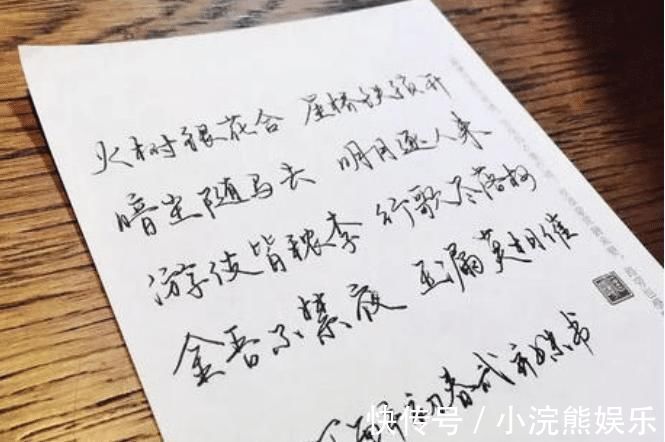 火树银花合 星桥铁锁开
暗尘随马去 明月逐人来
游伎皆秾李 行歌尽落梅
金吾不禁夜 玉漏莫相催
初春 书
快传号 / 小浣熊娱乐